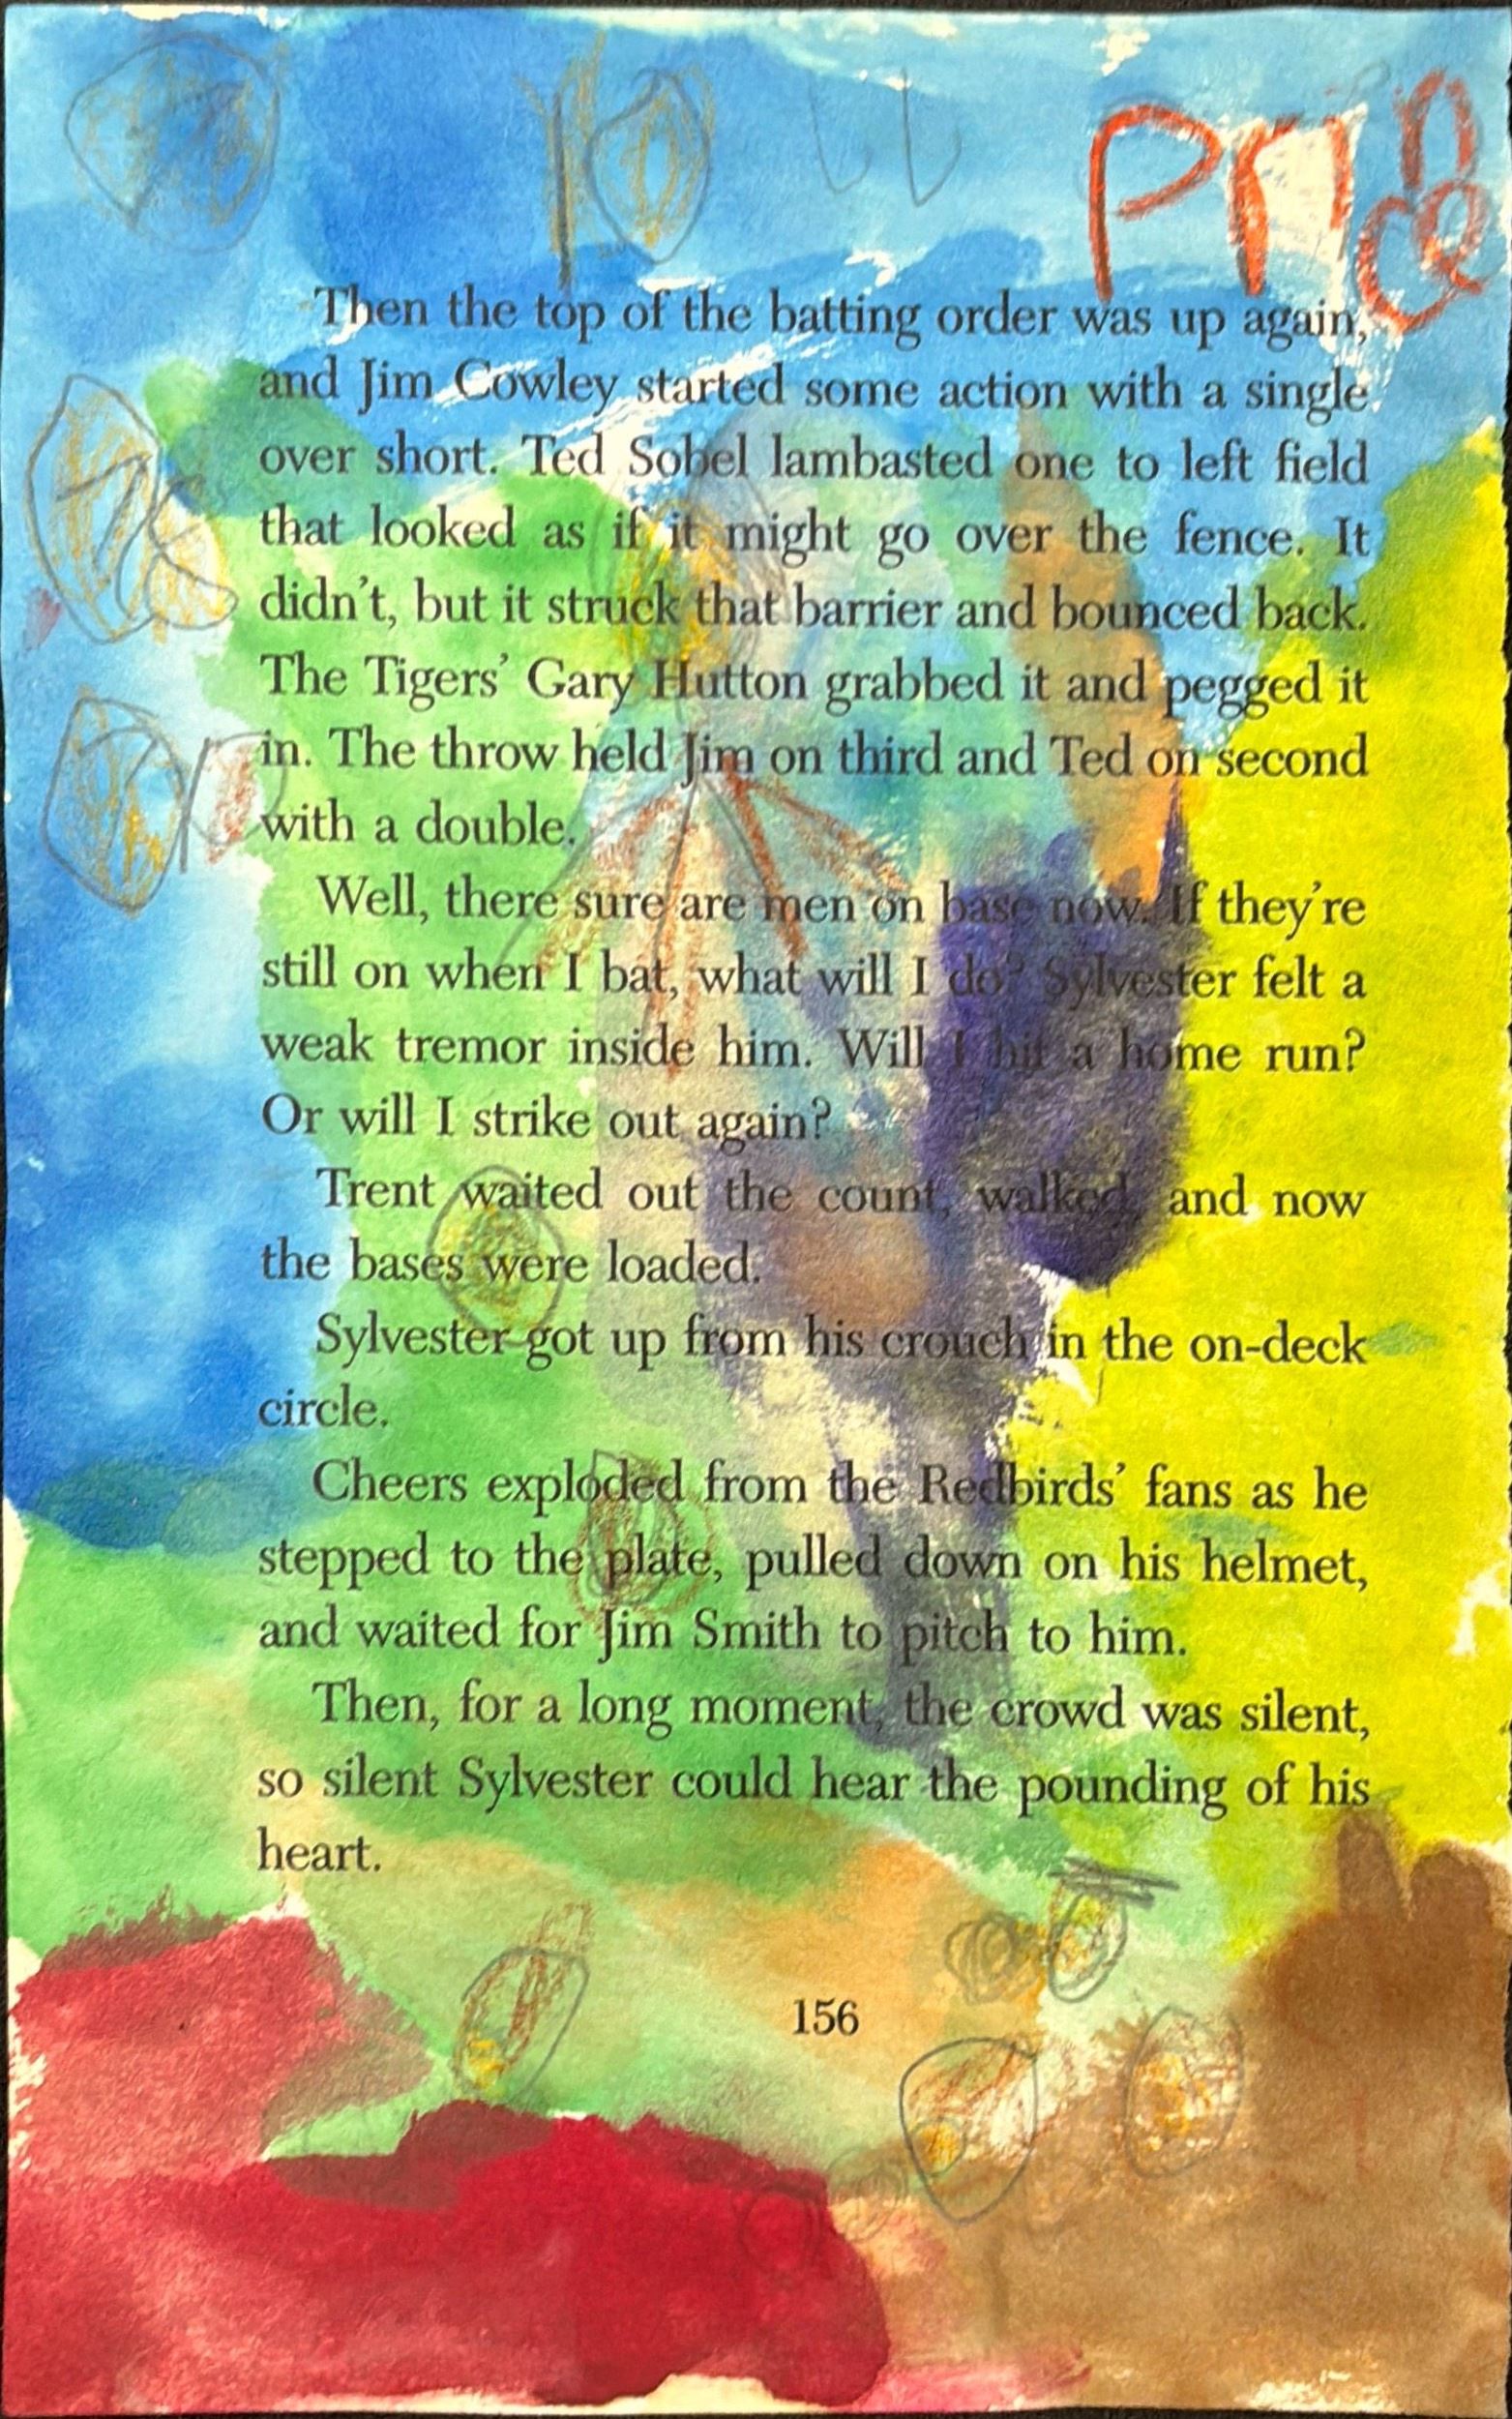 Then the top of the batting order was up again,
and Jim Cowley started some action with a single
over short. Ted Sobel lambasted one to left field
that looked as if it might go over the fence. It
didn't, but it struck that barrier and bounced back.
The Tigers' Gary Hutton grabbed it and pegged it
in. The throw held Jim on third and Ted on second
with a double.
Well, there sure are men on base now. If they're
still on when I bat, what will I do? Sylvester felt a
weak tremor inside him. Will I hit a home run?
Or will I strike out again?
Trent waited out the count, walked, and now
the bases were loaded.
Sylvester got up from his crouch in the on-deck
circle.
Cheers exploded from the Redbirds' fans as he
stepped to the plate, pulled down on his helmet,
and waited for Jim Smith to pitch to him.
Then, for a long moment, the crowd was silent,
so silent Sylvester could hear the pounding of his
heart.
156